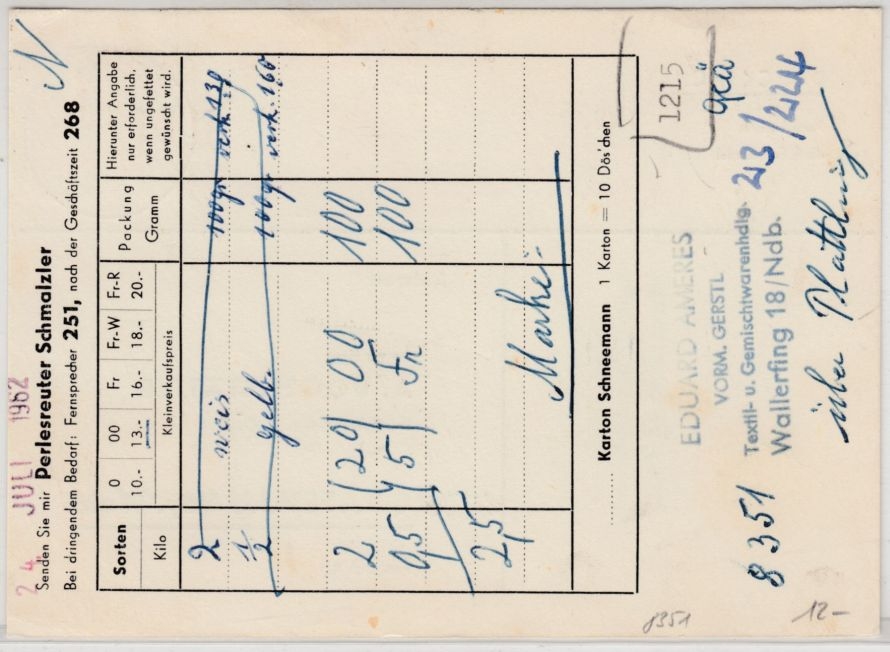 24 JULI 1962
Senden Sie mir Perlesreuter Schmalzler
Bei dringendem Bedarf: Fernsprecher 251, nach der Geschäftszeit 268
N
Sorten 0 00 Fr Fr-W Fr-R Packung Hierunter Angabe
nur erforderlich,
wenn ungefettet
gewünscht wird.
Kilo 10.- 13.- 16.- 18.- 20.- Gramm
Kleinverkaufspreis
2 weis 100gr verk. 139
1/2 gelb. 100gr verk. 160
2 (20) 00 100
0,5 (5) Fr 100
2,5
Karton Schneemann 1 Karton = 10 Dös'chen
1215
EDUARD AMERES
VORM. GERSTL
Textil- u. Gemischtwarenhdlg.
8351 Wallerfing 18/Ndb. 213/224
über Plattling
8351
12-